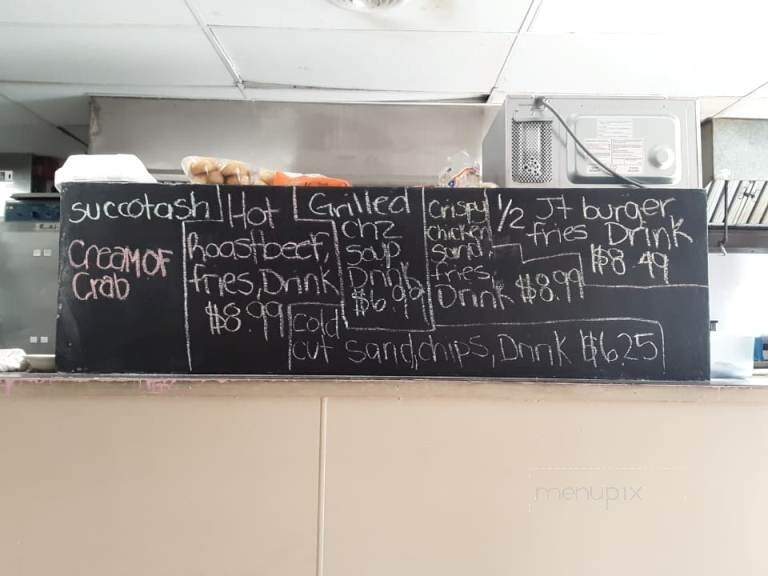 succotash
CreaM OF
Crab
Hot
Roastbeef,
fries, Drink
$8.99
Grilled
chz
soup
Drink
$6.99
Crispy
chicken
Sand
fries
Drink $8.99
1/2 Jt burger,
fries Drink
$8.49
cold
cut sand, chips, Drink $6.25
menupix